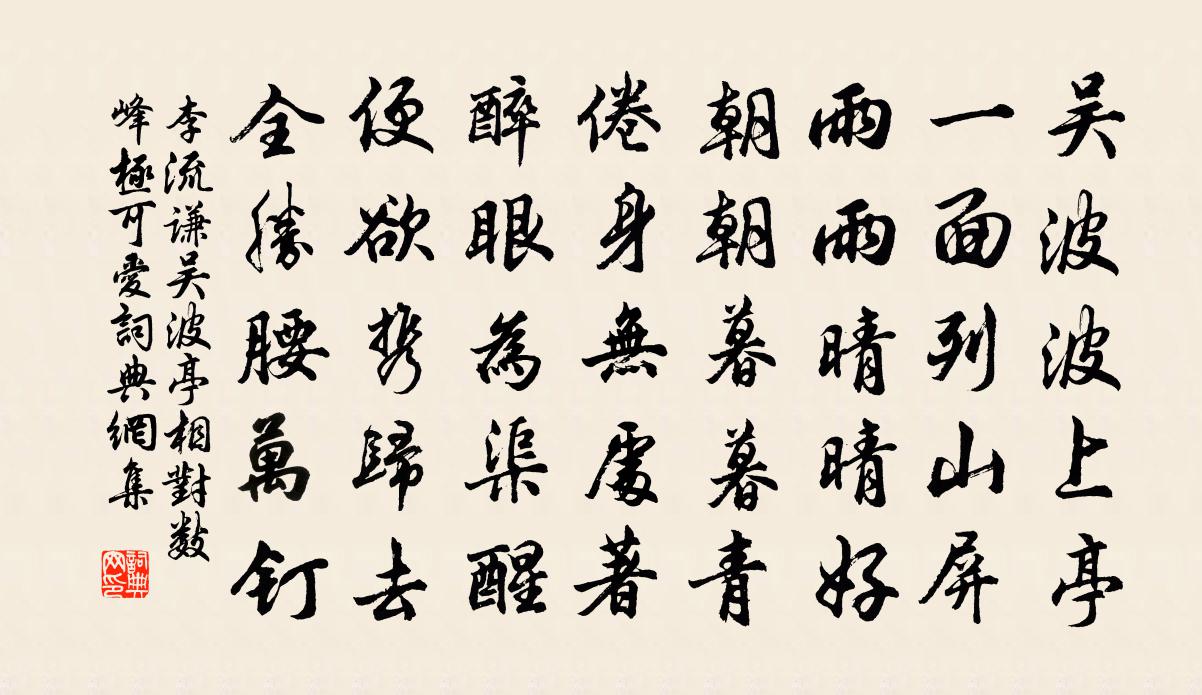 吴波波上亭
一面列山屏
雨雨晴晴好
朝朝暮暮青
倦身無處著
醉眼為渠醒
便欲携歸去
全勝腰萬釘
李流谦吴波亭相對数
峰極可愛詞典網集
詞典網印